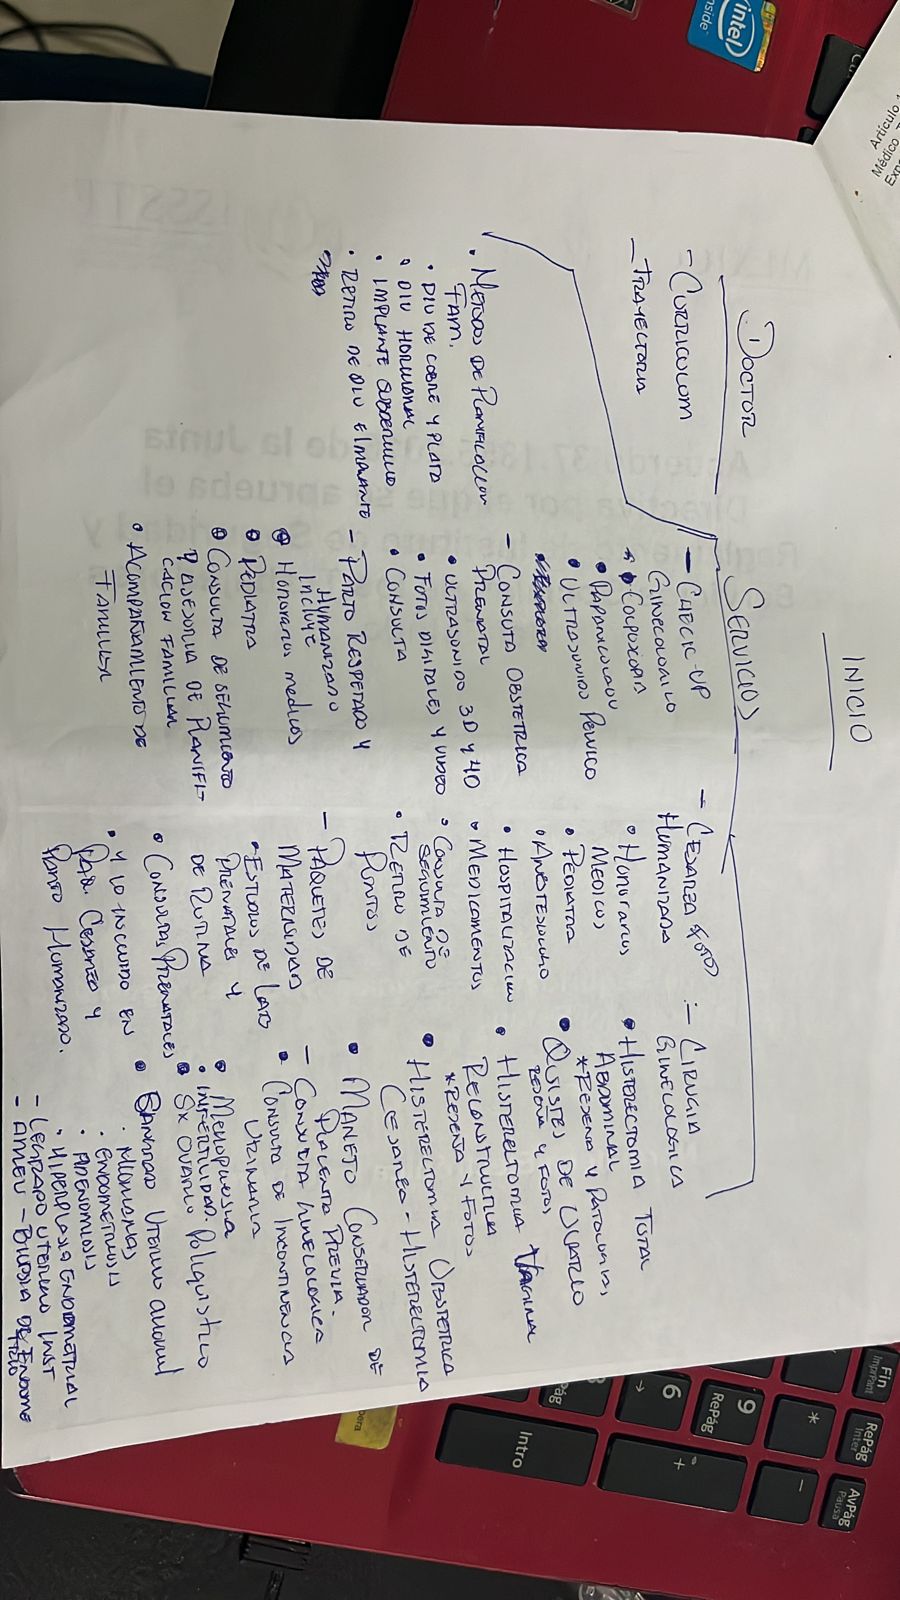 INICIO
DOCTOR
- CURRICULUM
- TRAYECTORIA
SERVICIOS
• METODOS DE PLANIFICACION
FAM.
• DIU DE COBRE Y PLATA
• DIU HORMONAL
• IMPLANTE SUBDERMICO
• RETIRO DE DIU E IMPLANTE
- CHECK-UP
GINECOLOGICO
• COLPOSCOPIA
• PAPANICOLAOU
• ULTRASONIDO PELVICO
- CONSUTA OBSTETRICA
PRENATAL
• ULTRASONIDO 3D Y 4D
• FOTOS DIGITALES Y VIDEO
• CONSULTA
- PARTO RESPETADO Y
HUMANIZADO
INCLUYE
• Honorarios medicos
• PEDIATRA
• CONSULTA DE SEGUIMIENTO
Y ASESORIA DE PLANIFI-
CACION FAMILIAR
• ACOMPAÑAMIENTO DE
FAMILIAR
- CESAREA FOTOS
HUMANIZADA
• Honorarios
MEDICOS
• PEDIATRA
• ANESTESIOLOGO
• HOSPITALIZACION
• MEDICAMENTOS
• CONSULTA DE
SEGUIMIENTO
• RETIRO DE
PUNTOS
- PAQUETES DE
MATERNIDAD
• ESTUDIOS DE LAB
PRENATALES Y
DE RUTINA
• CONSULTAS PRENATALES
• Y LO INCLUIDO EN
PAQ. CESAREA Y
PARTO HUMANIZADO.
- CIRUGIA
GINECOLOGICA
• HISTERECTOMIA TOTAL
ABDOMINAL
*RESEÑA Y PATOLOGIA,
• QUISTES DE OVARIO
RESEÑA Y FOTOS
• HISTERECTOMIA VAGINAL
RECONSTRUCTIVA
*RESEÑA Y FOTOS
• HISTERECTOMIA OBSTETRICA
CESAREA - HISTERECTOMIA
• MANEJO CONSERVADOR DE
PLACENTA PREVIA.
- CONSULTA GINECOLOGICA
• CONSULTA DE INCONTINENCIA
URINARIA
• MENOPAUSIA
• INFERTILIDAD.
• SX OVARIO POLIQUISTICO
• SANGRADO UTERINO ANORMAL
• MIOMAS
• ENDOMETRIOSIS
• ADENOMIOSIS
• HIPERPLASIA ENDOMETRIAL
- LEGRADO UTERINO INST
- AMEU - BIOPSIA DE ENDOME
TRIO
intel
inside
Artículo 1
Médico
Fin
ImprPant
RePág
Inter
AvPág
Pausa
*
-
9
RePág
+
6
→
3
Pág
Intro